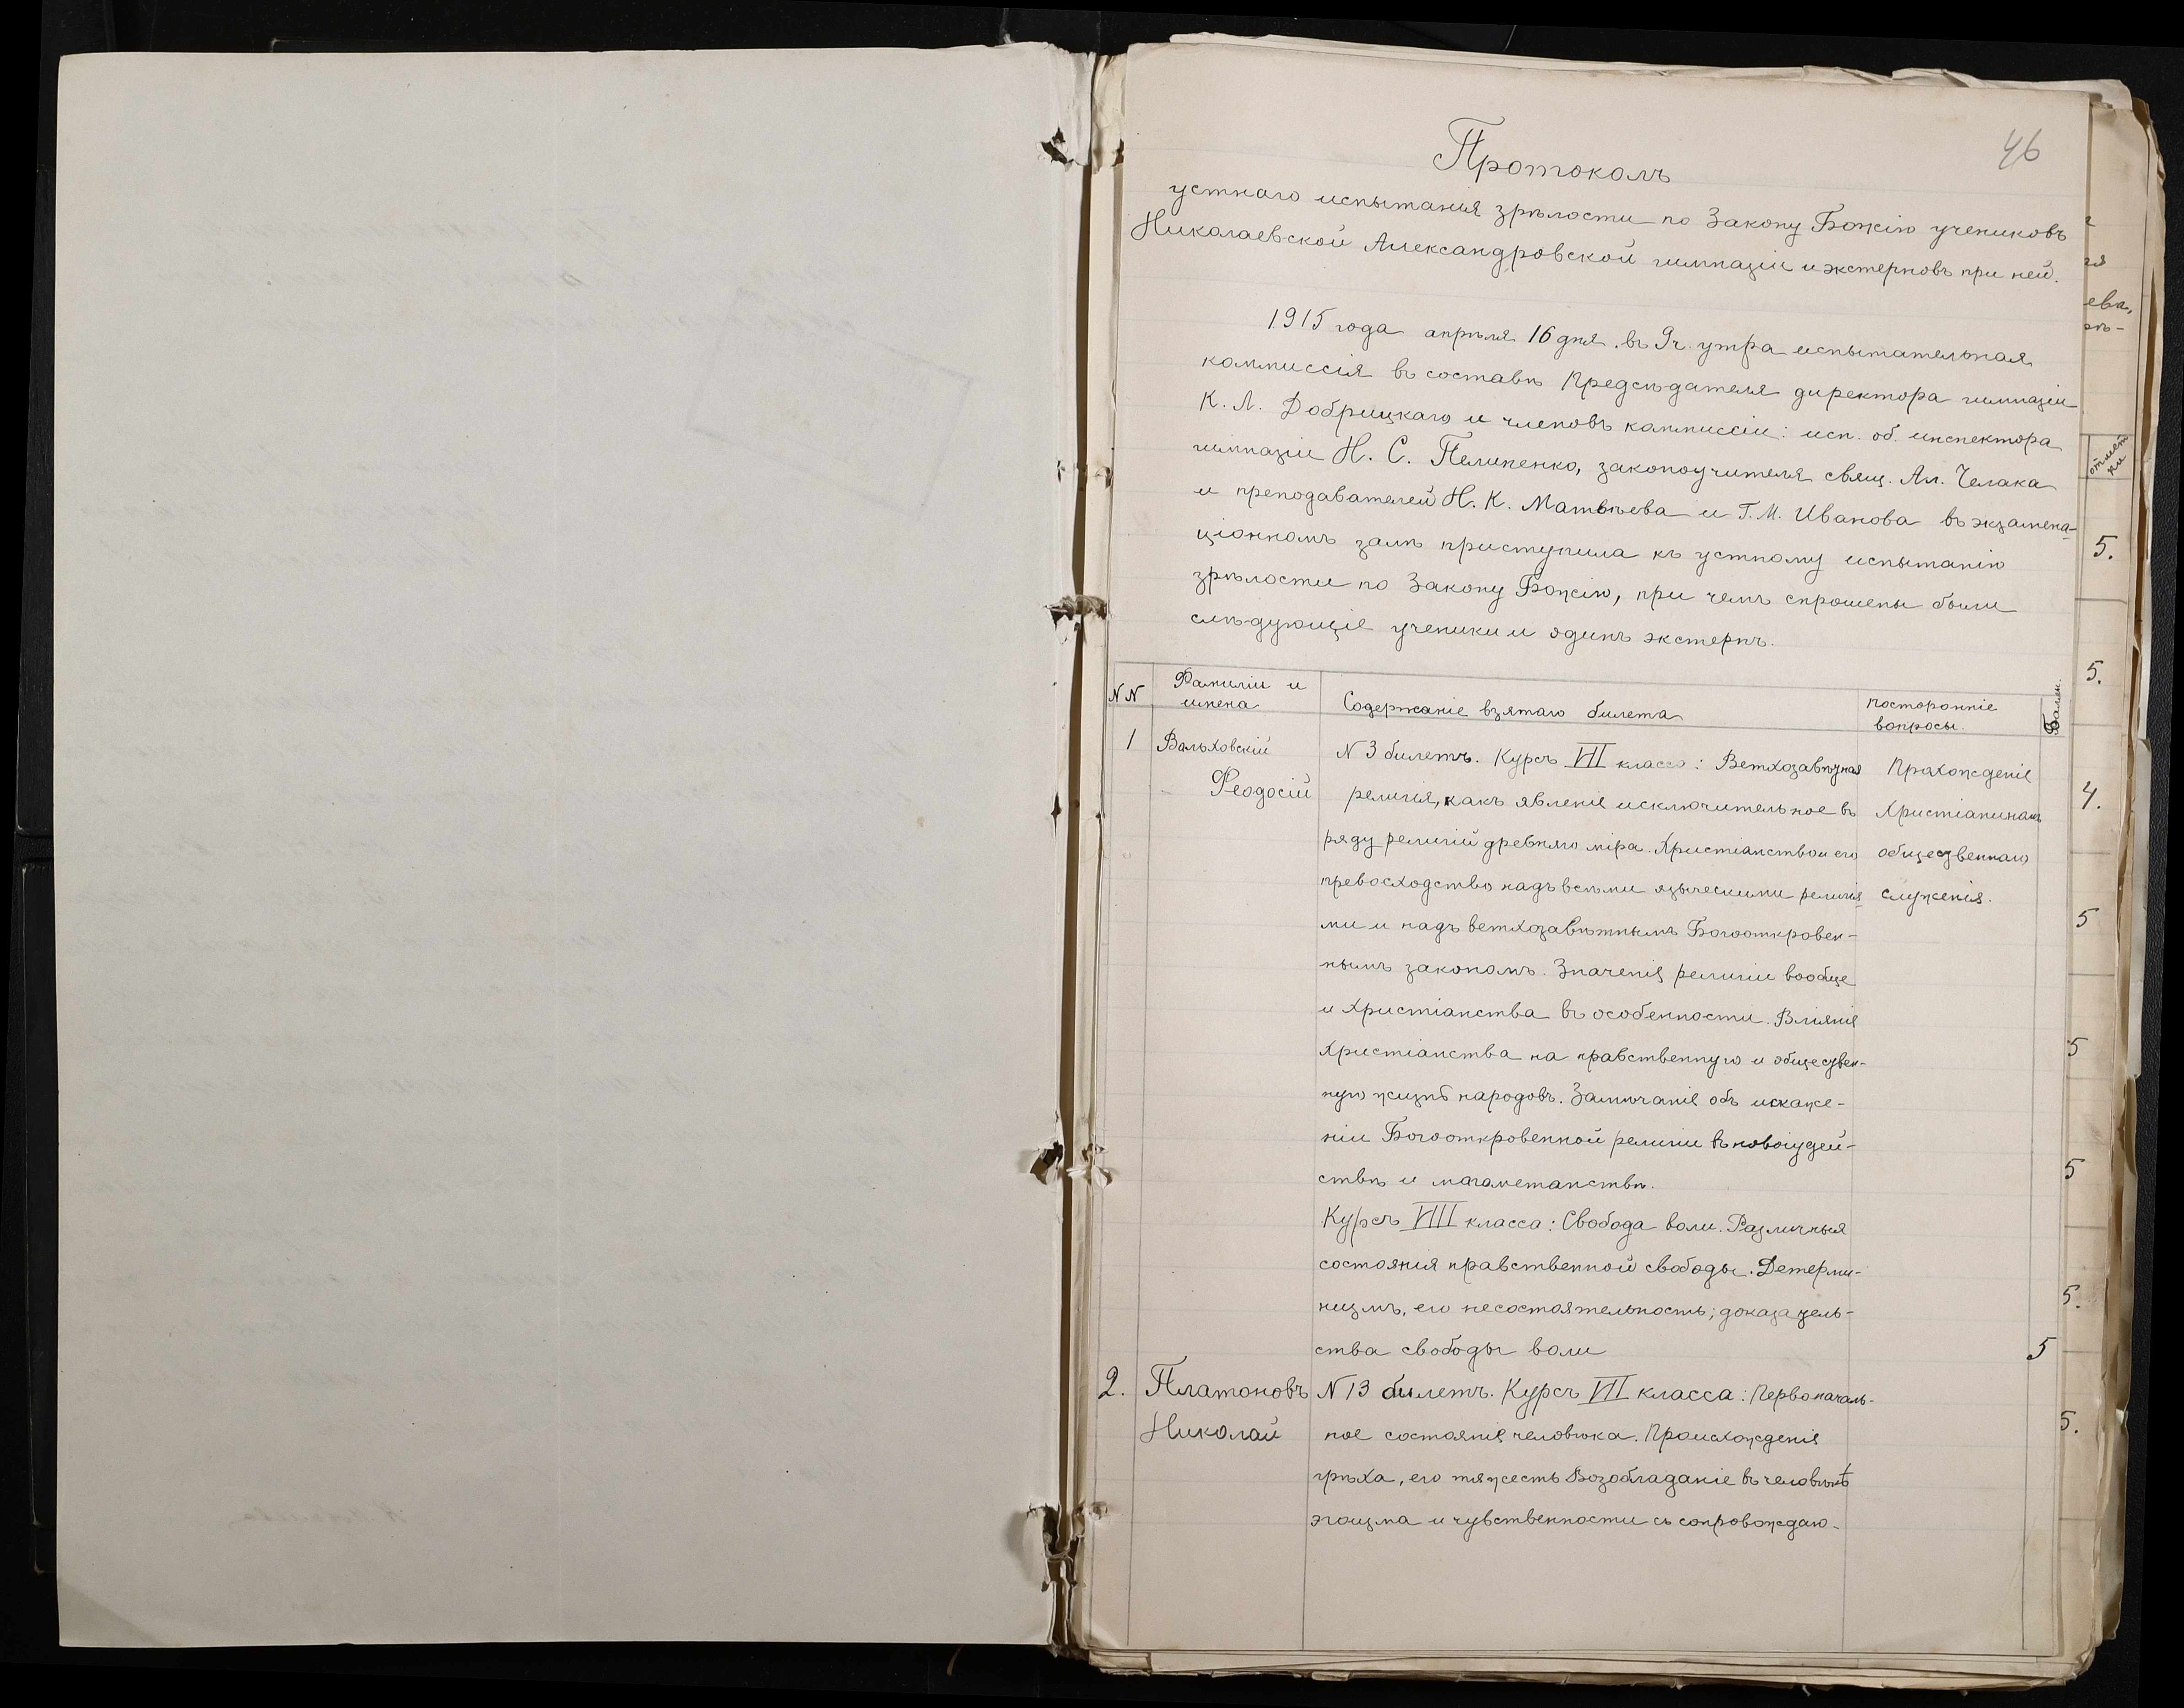 46
Протоколъ
устнаго испытанія зрѣлости по Закону Божію учениковъ
Николаевской Александровской гимназіи и экстерновъ при ней.
1915 года апрѣля 16 дня въ 9 ч. утра испытательная
коммиссія въ составѣ Предсѣдателя директора гимназіи
К. Л. Добрицкаго и членовъ коммиссіи: исп. об. инспектора
гимназіи Н. С. Пелипенко, законоучителя свящ. Ал. Челака
и преподавателей Н. К. Матвѣева и Г. М. Иванова въ экзамена-
ціонномъ залѣ приступила къ устному испытанію
зрѣлости по Закону Божію, при чемъ спрошены были
слѣдующіе ученики и одинъ экстернъ.
NN
Фамиліи и
имена
Содержаніе взятаго билета
посторонніе
вопросы.
Баллы.
1
Вольховскій
Феодосій
N 3 билетъ. Курсъ VII класса: Ветхозавѣтная
религія, какъ явленіе исключительное въ
ряду религій древняго міра. Христіанство и его
превосходство надъ всѣми языческими религія-
ми и надъ ветхозавѣтнымъ Богооткровен-
нымъ закономъ. Значеніе религіи вообще
и Христіанства въ особенности. Вліяніе
Христіанства на нравственную и обществен-
ную жизнь народовъ. Замѣчаніе объ искаже-
ніи Богооткровенной религіи въ новоіудей-
ствѣ и магометанствѣ.
Курсъ VIII класса: Свобода воли. Различныя
состоянія нравственной свободы. Детерми-
низмъ, его несостоятельность; доказатель-
ства свободы воли
Прохожденіе
Христіаниномъ
общественнаго
служенія.
5
2.
Платоновъ
Николай
N 13 билетъ. Курсъ VII класса: Первоначаль-
ное состояніе человѣка. Происхожденіе
грѣха, его тяжесть Возобладаніе въ человѣкѣ
эгоизма и чувственности съ сопровождаю-
ева,
отмѣт
ки
5.
5.
4.
5
5
5
5.
5.